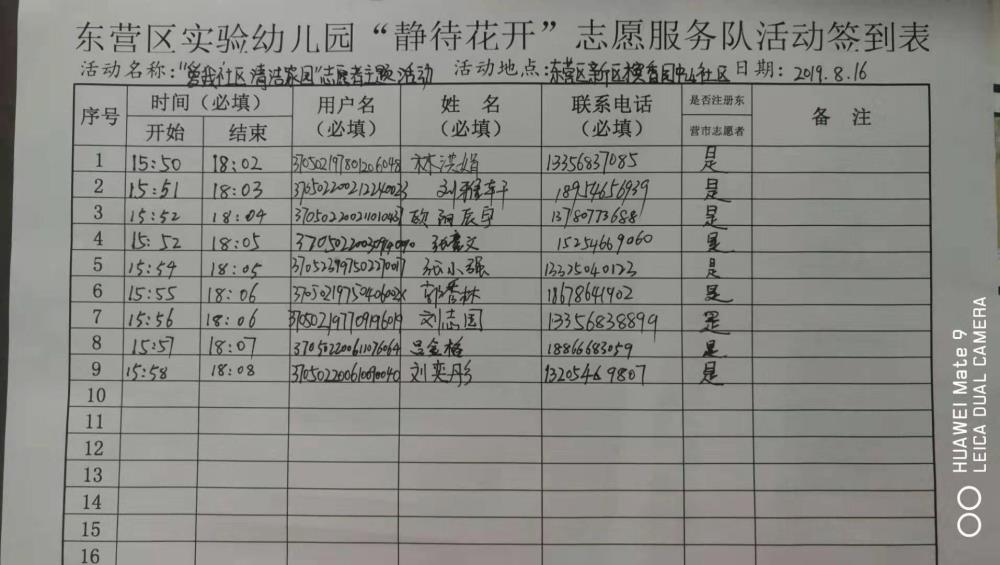 东营区实验幼儿园“静待花开”志愿服务队活动签到表
活动名称：“爱我社区清洁家园”志愿者主题活动 活动地点：东营区新区社区 日期：2019.8.16
序号 时间（必填） 用户名（必填） 姓名（必填） 联系电话（必填） 是否注册东营市志愿者 备注
开始 结束
1 15:50 18:02 370502197801206048 林洪娟 13356837085 是
2 15:51 18:03 370502200212240023 刘雅轩 18954656939 是
3 15:52 18:04 辰宇 13780773688 是
4 15:52 18:05 15254669060 是
5 15:54 18:05 370523197502270017 张小强 13325040123 是
6 15:55 18:06 37050219750406002X 郭秀林 18678641902 是
7 15:56 18:06 370502197709196019 刘志国 13356838899 是
8 15:57 18:07 370502200611076064 吕金格 18866683059 是
9 15:58 18:08 370502200610090040 刘奕彤 13205469807 是
10
11
12
13
14
15
16
HUAWEI Mate 9
LEICA DUAL CAMERA